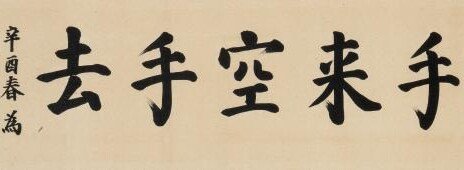 手来空手去
辛酉春為